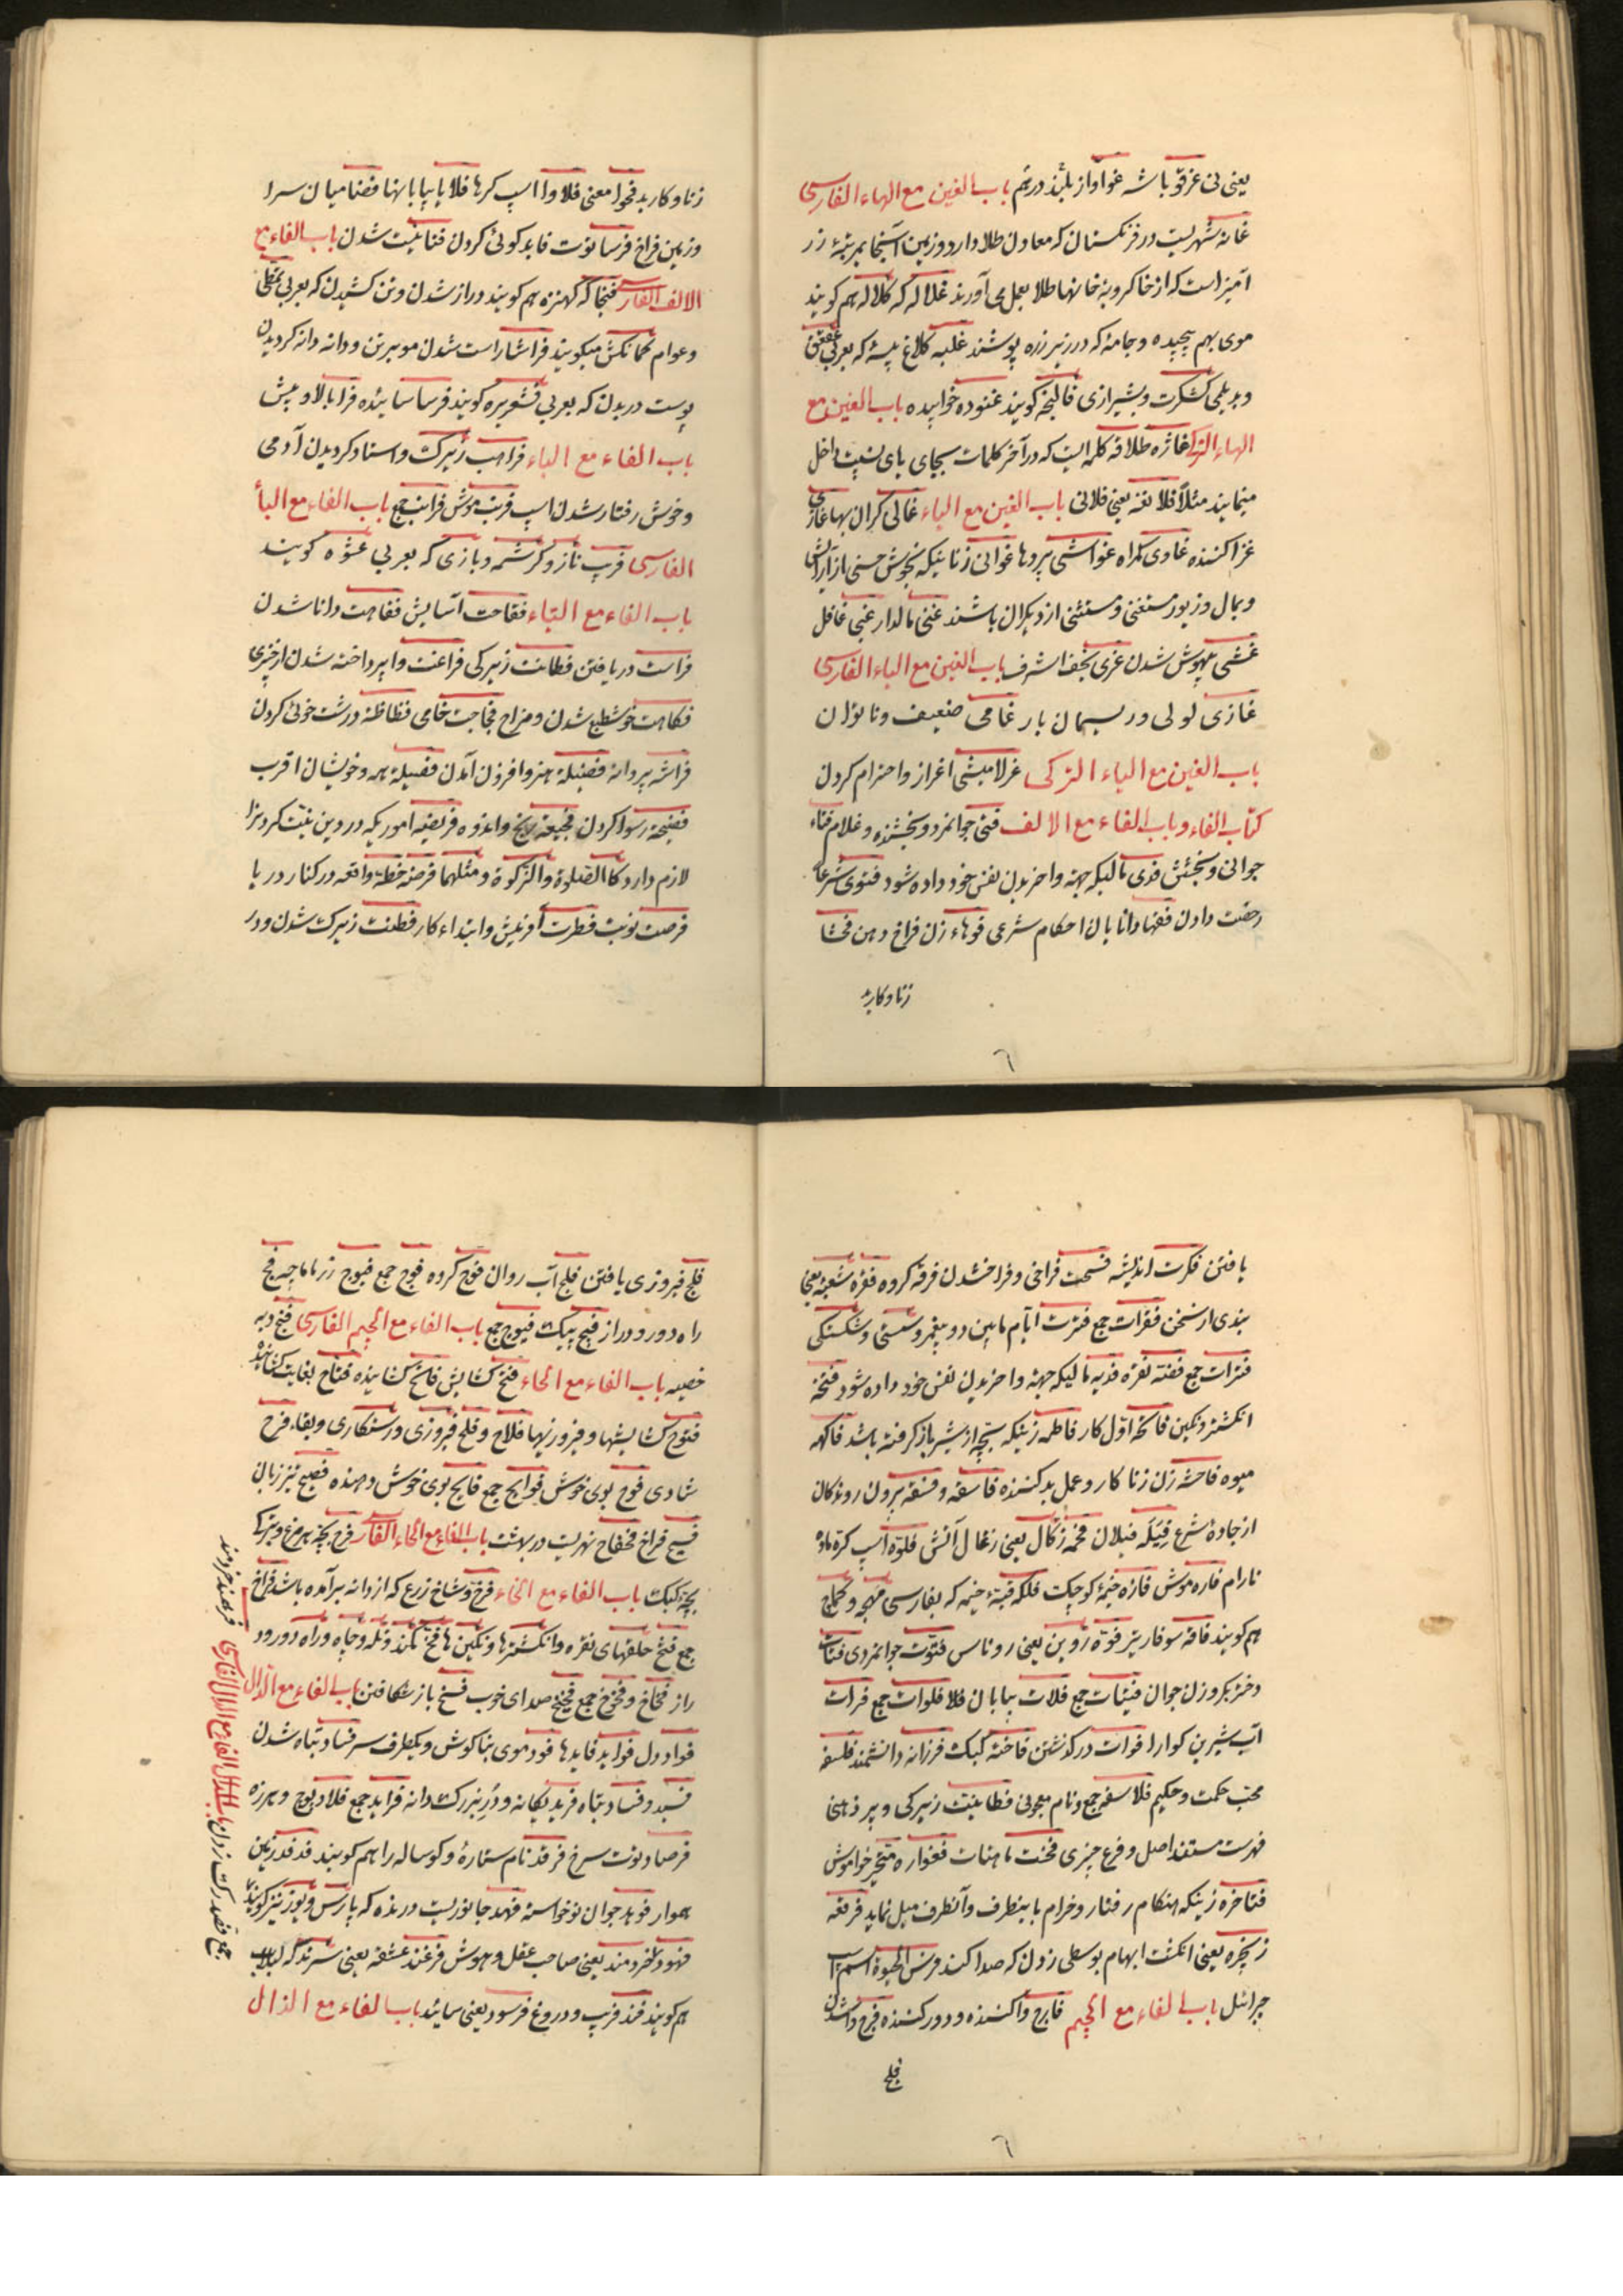 یعنی بی غرقو باشه غواواز بلند درتم باب الغین مع الهاء الفارسی
غانه شهریست در فرنکستان که معادن طلا دارد و زمین آنجا بمرتبهٔ زر
آمیز است که از خاکروبهٔ خانها طلا بعمل می آورند غلاله که کلاله هم کویند
موی بهم پیچیده و جامهٔ که در زیر زره پوشند غلبه کلاغ پیسه که بعربی عقعق
و بدیلمی کشکرت و بشیرازی قالنجه کویند غنوده خوابیده باب الغین مع
الهاء الترکی غازه طلاقه کلمه ایست که در آخر کلمات بجای یای نسبت داخل
مینمایند مثلاً فلانغه یعنی فلانی باب الغین مع الیاء غالی کران بها غازی
غزا کننده غاوی کمراه غواشی پردها غوانی زنانیکه بخوش حسنی از آرایش
و بمال و زیور مستغنی و مستثنی از دیکران باشند غنی مالدار غبی غافل
غشی بیهوش شدن غری نجف اشرف باب الغین مع الیاء الفارسی
غازی لولی و ریسمان باز غامی ضعیف و ناتوان
باب الغین مع الیاء الترکی غرلامیشی اغراز و احترام کردن
کتاب الفاء و باب الفاء مع الالف فتی جوانمرد و بخشنده و غلام فتاء
جوانی و بخشش فدی مالیکه جهة واخریدن نفس خود داده شود فتوی شرعا
رخصت دادن فقها دانایان احکام شرعی فوهاء زن فراخ دهن فحشا
زنا و کارید
زنا و کاربد فحوا معنی فلاوا اسپ کرها فلایا بیابانها فضا میان سرا
و زمین فراخ فرسا توت فاید کوئی کردن فنا نیست شدن باب الفاء مع
الالف الفارسی فنجا که کهنزه هم کویند دراز شدن و تن کشیدن که بعربی تمطی
و عوام کمانکش میکویند فراشا راست شدن مو بر تن و دانه دانه کردیدن
پوست در بدن که بعربی قشعریره کویند فرسا سائیده فرا بالا و پیش
باب الفاء مع الباء فراهب زیرک و استاد کردیدن آدمی
و خوش رفتار شدن اسپ فرنب موش فرانب جمع باب الفاء مع البأ
الفارسی فریب ناز و کرشمه و بازی که بعربی عشوه کویند
باب الفاء مع التاء فقاحت آسایش فقاهت دانا شدن
فراست دریافتن فطانت زیرکی فراغت واپرداخته شدن از چیزی
فکاهت خوشطبع شدن و مزاح فجاجت خامی فظاظة درشت خوئی کردن
فراشه پروانه فضیلة هنر و افزون آمدن فصیلة همه و خویشان اقرب
فضیحة رسوا کردن فجیعة رنج و اندوه فریضه اموریکه در دین نیت کردنرا
لازم دارد کالصلوة والزکوة و مثلهما فرضه خطهٔ واقعه در کنار دریا
فرصت نوبت فطرت آفرینش و ابتداء کار فطنت زیرک شدن و در
یافتن فکرت اندیشه فسحت فراخی و فراخ شدن فرقه کروه فقره شعبهٔ یعنی
بندی از سخن فقرات جمع فترت ایام مابین دو پیغمبر و سستی و شکستکی
فترات جمع فضته نقره فدیه مالیکه جهة واخریدن نفس خود داده شود فتخه
انکشتر و نکین فاتحه اول کار فاطمه زنیکه بچه از شیر باز کرفته باشد فاکهه
میوه فاحشه زن زناکار و عمل بد کننده فاسقه و فسقه بیرون روندکان
از جادهٔ شرع فیله فیلان فحمه زکال یعنی زغال آتش فلوه اسپ کرهٔ ماده
نارام فاره موش فازه خیمهٔ کوچک فلکه قبهٔ خیمه که بفارسی مهجه و کماج
هم کویند فاقه سوفار تیر فوه روین یعنی روناس فتوت جوانمردی فتات
دختر بکر و زن جوان فتیات جمع فلات بیابان فلا فلوات جمع فرات
آب شیرین کوارا فوات در کذشتن فاخته کبک فرزانه دانشمند فلسفه
محب حکمت و حکیم فلاسفه جمع و نام معجونی فطانت زیرکی و پر ذهنی
فهرست مستند اصل و فرع چیزی فحنت ناهنات فغواره متحیر خواموش
فتاخره زنیکه هنکام رفتار و خرام باینطرف و آنطرف میل نماید فرقعه
زنجره یعنی انکشت ابهام بوسطی زدن که صدا کند فرس الحیوة اسم اسب
جبرائیل باب الفاء مع الجیم فارج وا کننده و دور کننده فرج وا شدن
فلج
فلج فیروزی یافتن فلج آب روان فوج کروه فوج جمع فیوج زرماماچه فج
راه دور و دراز فیج پیک فیوج جمع باب الفاء مع الجیم الفارسی فنج دبه
خصیه باب الفاء مع الحاء فتح کشایش فاتح کشاینده فتاح بغایت کشاینده
فتوح کشایشها و فیروزیها فلاح و فلح فیروزی و رستکاری و بقاء فرح
شادی فوح بوی خوش فوایح جمع فایح بوی خوش دهنده فصیح تیز زبان
فسیح فراخ فحفاح نهریست در بهشت باب الفاء مع الحاء الفارسی فرح بچه هر مرغ و بترکی
بچهٔ کبک باب الفاء مع الخاء فرخ و شاخ زرع که از دانه برآمده باشد فراخ
جمع فتخ حلقهای نقره و انکشترها و نکین ها فخ کمند و تله و چاه و راه دور و
دراز فخاخ و فخوخ جمع فخیخ صدای خوب فسخ باز شکافتن باب الفاء مع الدال
فواد دل فواید فایدها فود موی بناکوش و یکطرف سر فساد تباه شدن
فسید و فساد تباه فرید یکانه و در بزرک دانه فراید جمع فلاد پوچ و هرزه
فرصاد توت سرخ فرقد نام ستارهٔ و کوساله را هم کویند فدفد زمین
هموار فوید جوان نوخواسته فهد جانوریست درنده که پارس و یوز نیز کویند
فهود خردمند یعنی صاحب عقل و هوش فرغند عشقه یعنی سرند که لبلاب
هم کویند فند فریب و دروغ فرسود یعنی سائید باب الفاء مع الذال
جمع فصد رک زدن باب الفاء مع الدال الفارسی فرهمند خردمند